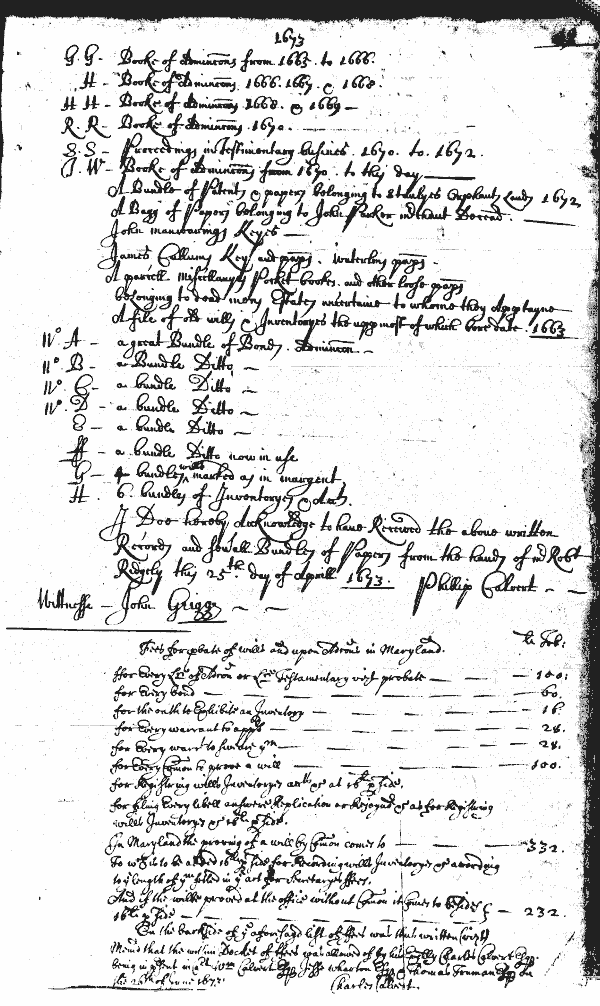 1673
G.G - Booke of Admincons from 1663. to 1666.
H - Booke of Admincons. 1666. 1667. & 1668.
H H - Booke of Admincons 1668. & 1669 —
R. R - Booke of Admincons. 1670.
S. S - Proceedings in testimentary busines. 1670. to. 1672.
W - Booke of Admincons from 1670. to this day
A Bundle of Patents & papers belonging to Orphants Lands 1672
A Bagg of Papers belonging to John Parker without
John manwarings Keyes
James Cullums Key and paps. paps -
A parcell Miscellanyes Pocket bookes and other loose paps
belonging to dead mens Estates uncertaine to whome they
A file of old wills & Inventoryes the uppmost of which bore date 1663
No. A - a great Bundle of Bonds. Admincon -
No. B - a Bundle Ditto —
No. C - a bundle Ditto —
No. D - a bundle Ditto —
E - a bundle Ditto —
ff - a bundle Ditto now in use
G - 4 bundles wills marked as in margent
H. 6. bundles of Inventoryes & Accts.
I Doe hereby Acknowledge to have Received the above written
Records and sevrall Bundles of Papers from the hands of mr Robt
Ridgely this 25th day of Aprill 1673. Phillip Calvert —
Wittnesse - John Griggs —
li Tob:
Fees for pbate of wills and upon Admns in Maryland.
ffor Every Lre of Admn or Lre Testamentary wth probate — 100:
for Every bond — 60.
for the oath to Exhibite an Inventory — 16
for Every warrant to appr — 28.
for Every warrt to sweare ym — 28.
for Every Comon to prove a will — 100.
for Registring wills Inventoryes acts &c at 16li p side.
for filing Every libell answere Replication or Rejoyndr &c as for Registring
wills Inventoryes &c 16li p side.
In Maryland the proving of a will by Comon comes to — 332.
To wch is to be added 16li p side for Recording wills Inventoryes &c according
to ye length of ym setled in ye act for Secretaryes ffees.
And if the will be proved at the office without Comon it comes to besides
16li p side — 232.
On the backside of ye aforesaid list of ffees was thus written (vizt)
Memd that the within Docket of ffees was allowed of by his Exlly Charles Calvert Esqr
being in psent in Calvert Esqr Jesse Wharton Esqr Thomas Truman Esqr
the of June 1673 Charles Calvert.